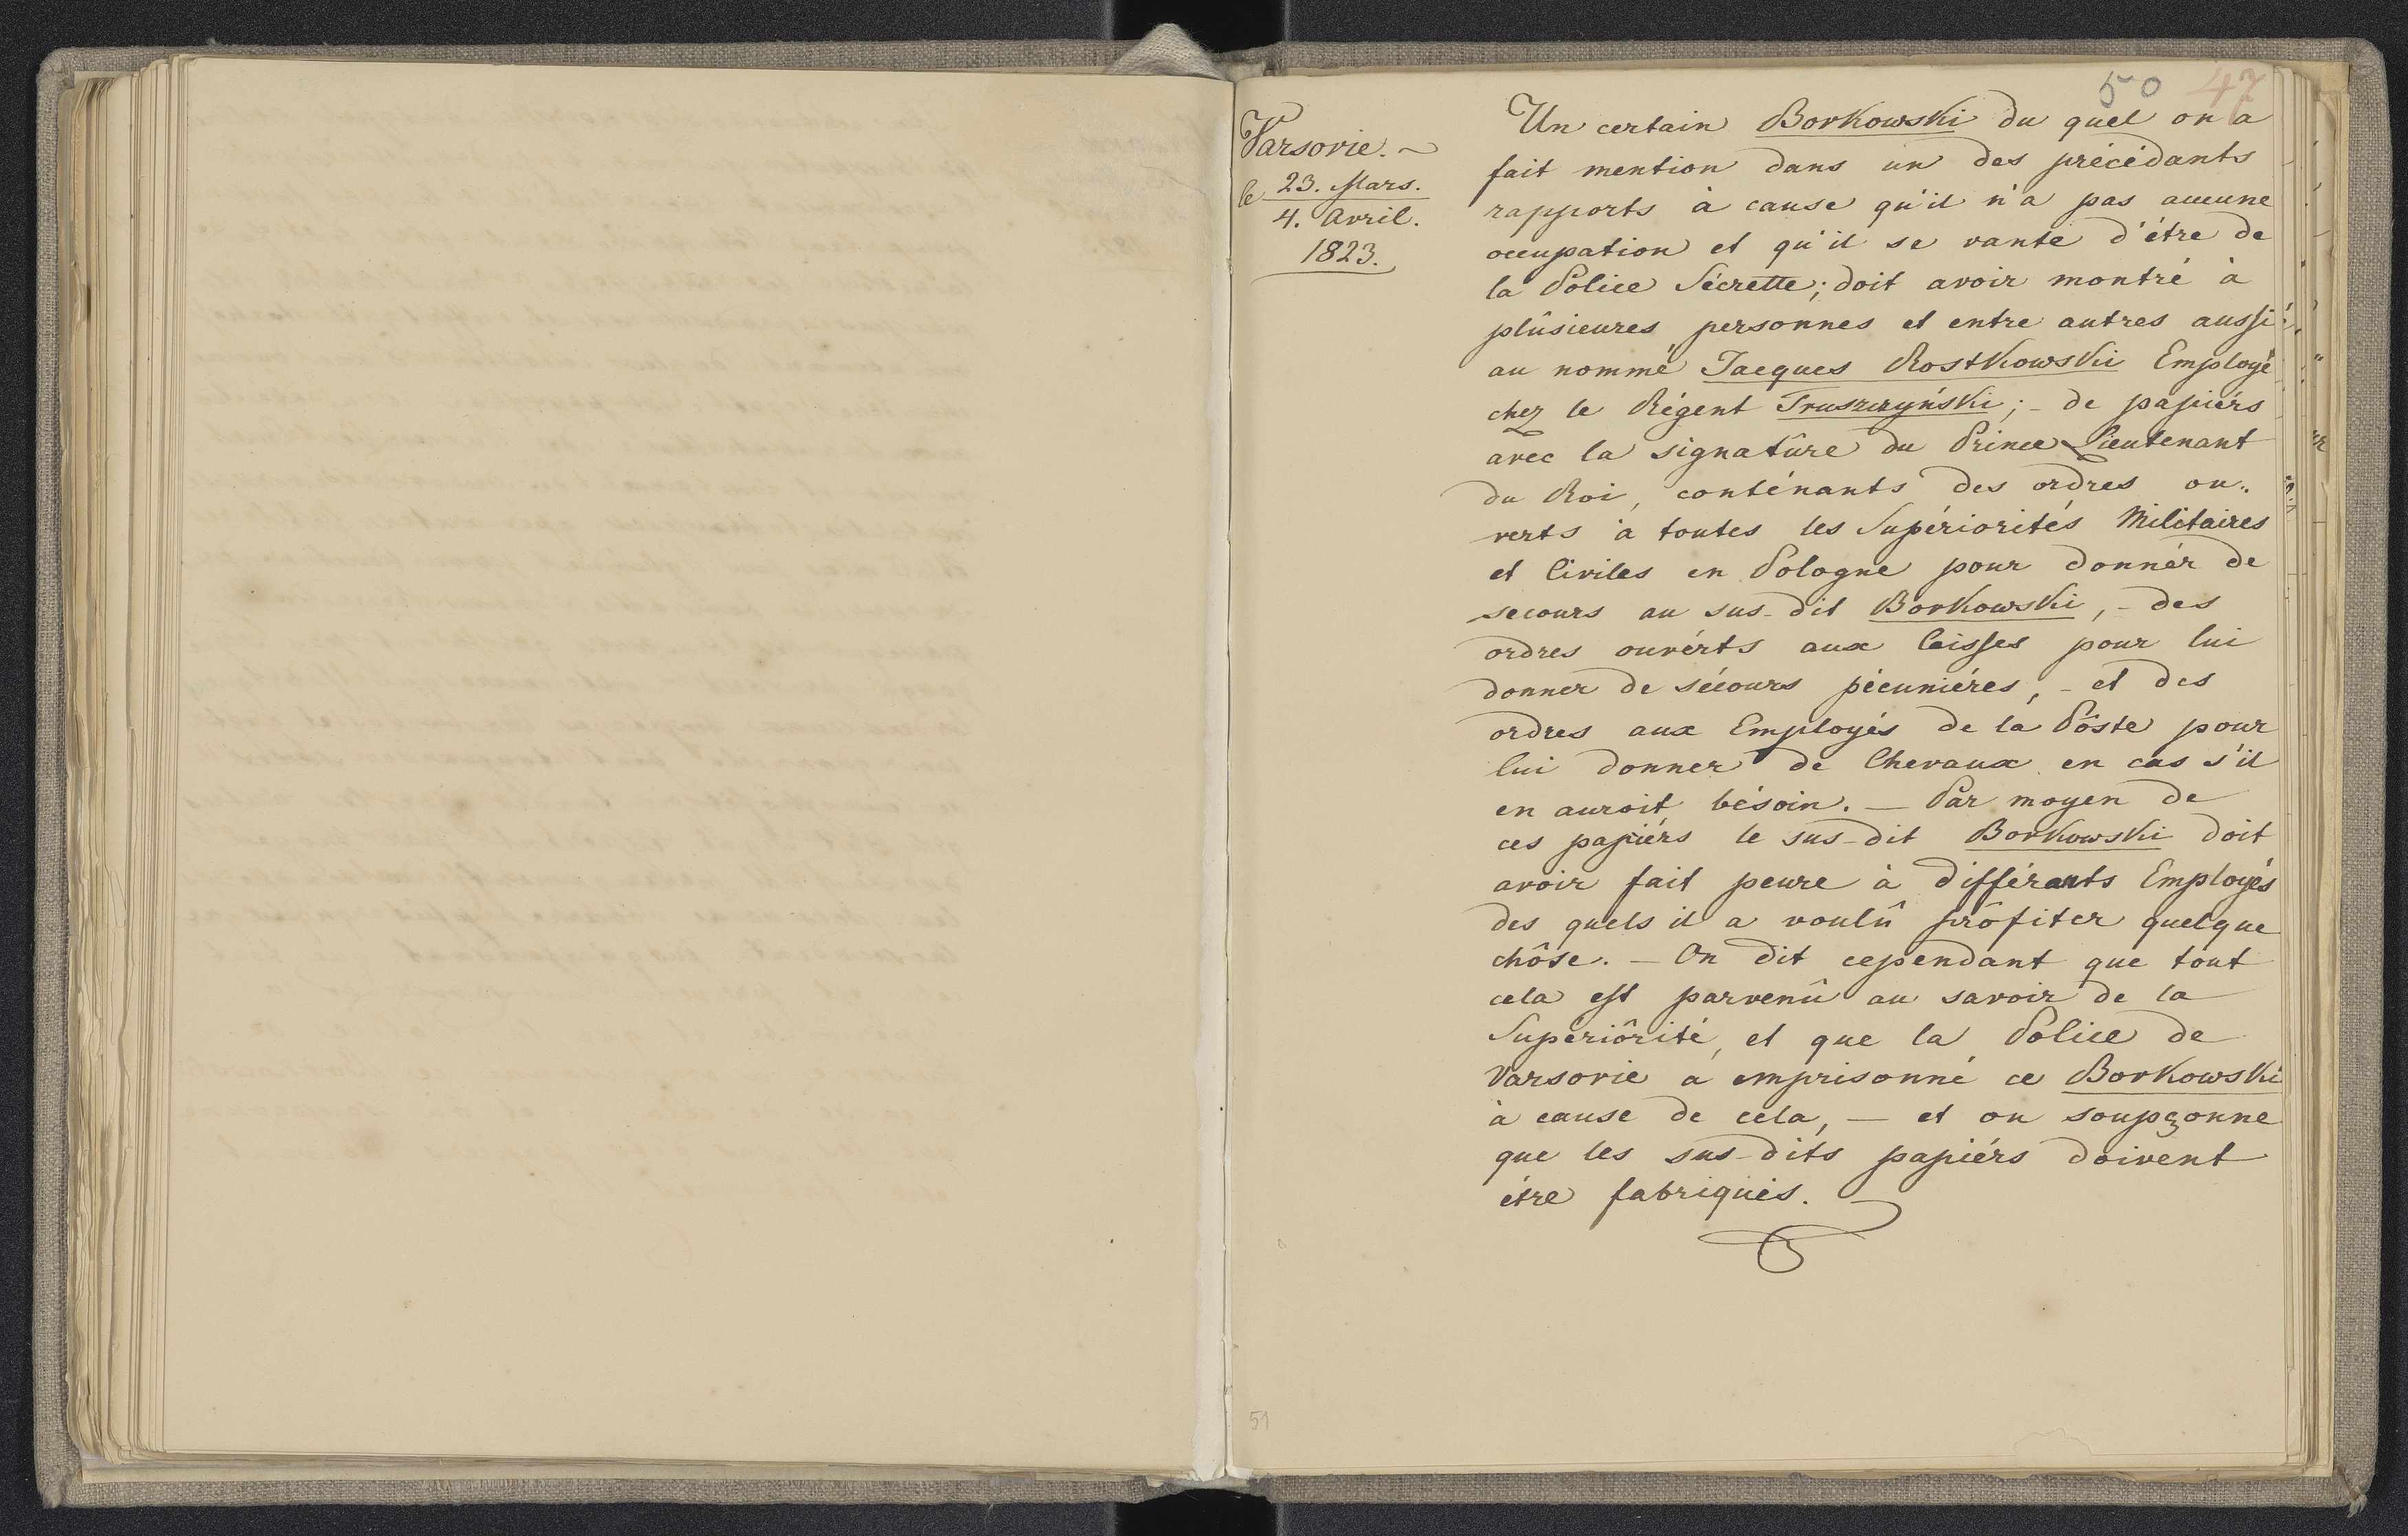 50 47
Varsovie.
le 23. Mars.
4. Avril.
1823.
Un certain Borkowski du quel on a
fait mention dans un des précédants
rapports à cause qu'il n'a pas aucune
occupation et qu'il se vante d'étre de
la Police Sécrette; doit avoir montré à
plûsieures personnes et entre autres aussi
au nommé Jacques Rostkowski Employé
chez le Régent Truszczyński; - de papiérs
avec la signatûre du Prince Lieutenant
du Roi, conténants des ordres ou„
verts à toutes les Supériorités Militaires
et Civiles en Pologne pour donnér de
secours au sus-dit Borkowski, - des
ordres ouvérts aux Caisses pour lui
donner de sécours pécuniéres, - et des
ordres aux Employés de la Pôste pour
lui donner de Chevaux en cas s'il
en auroit bésoin. — Par moyen de
ces papiérs le sus-dit Borkowski doit
avoir fait peure à différants Employés
des quels il a voulû prôfiter quelque
chôse. — On dit cependant que tout
cela est parvenû au savoir de la
Supériôrité, et que la Police de
Varsovie a emprisonné ce Borkowski
à cause de cela, — et on soupçonne
que les sus-dits papiérs doivent
étre fabriqués.
51